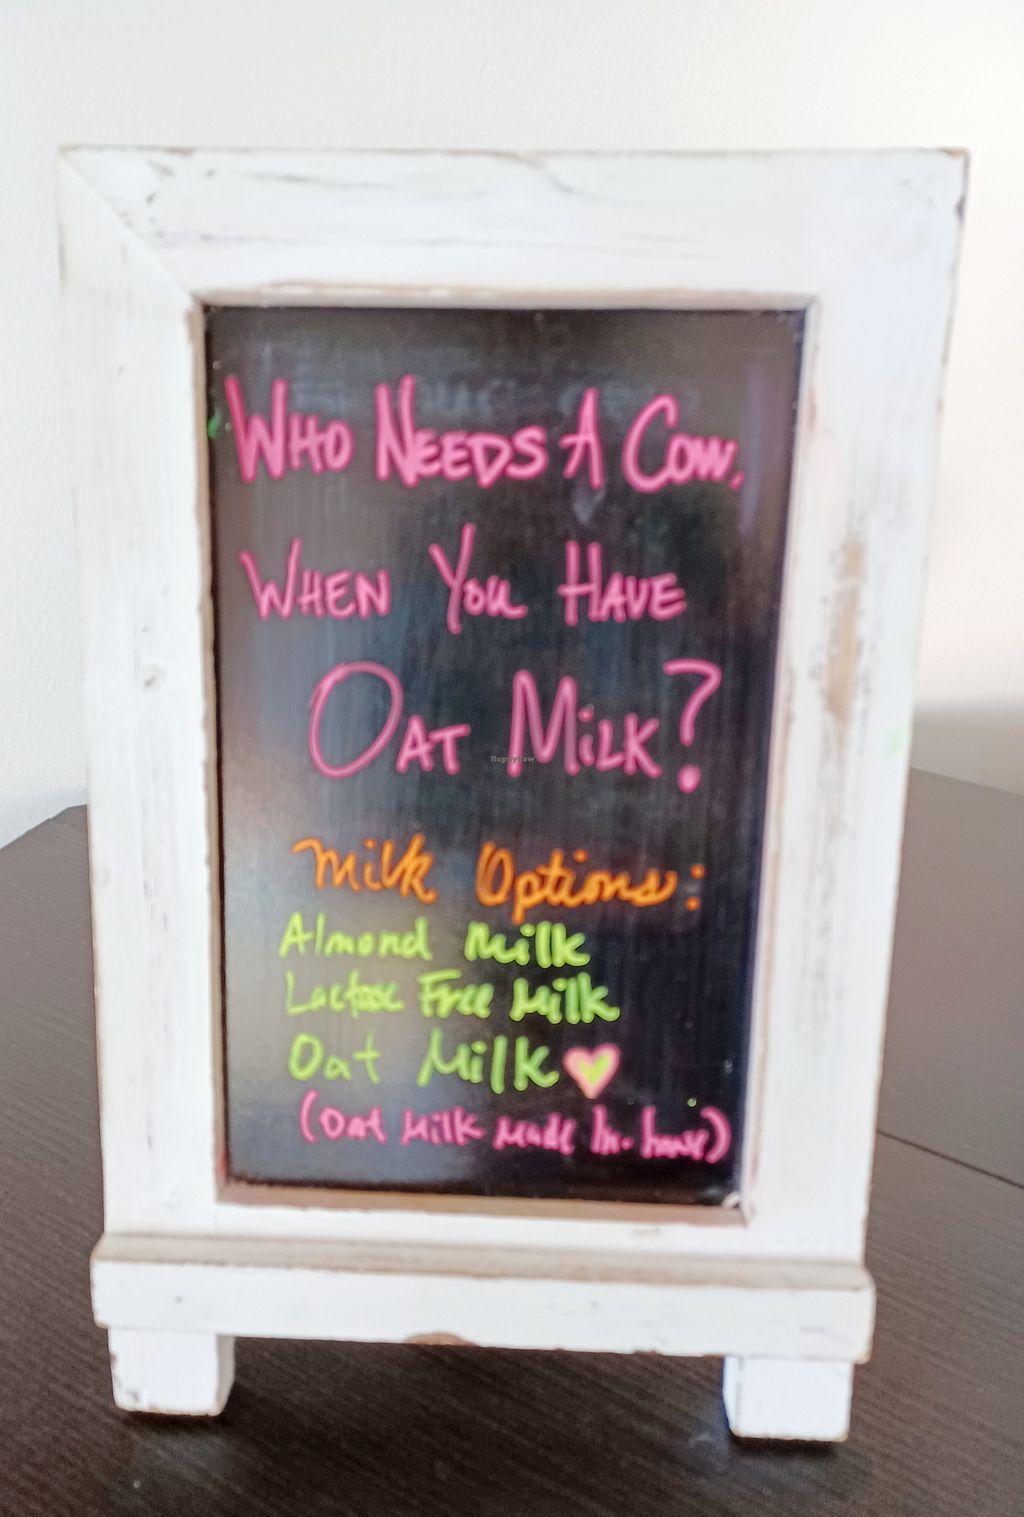 Who Needs A Cow,
When You Have
Oat Milk?
HappyCow
Milk Options:
Almond Milk
Lactose Free Milk
Oat Milk
(Oat Milk Made In-house)